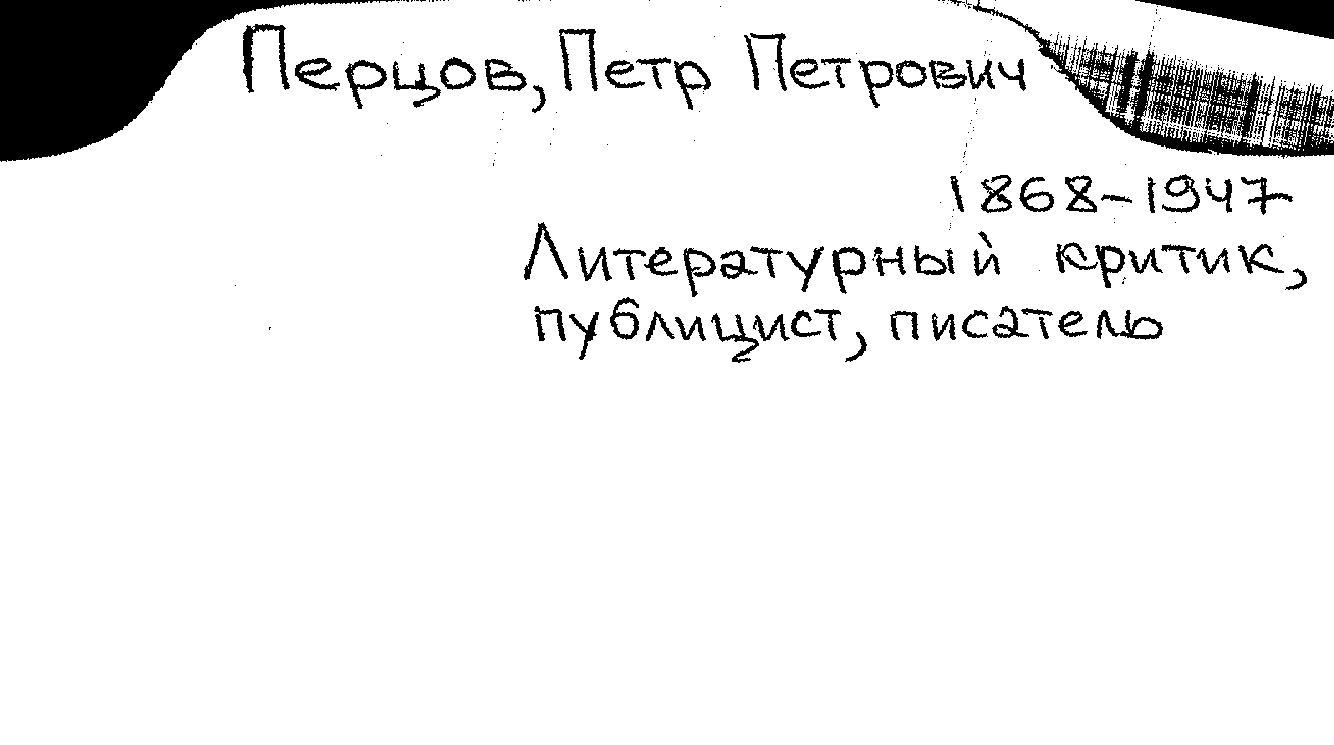 Перцов, Петр Петрович
1868-1947
Литературный критик,
публицист, писатель